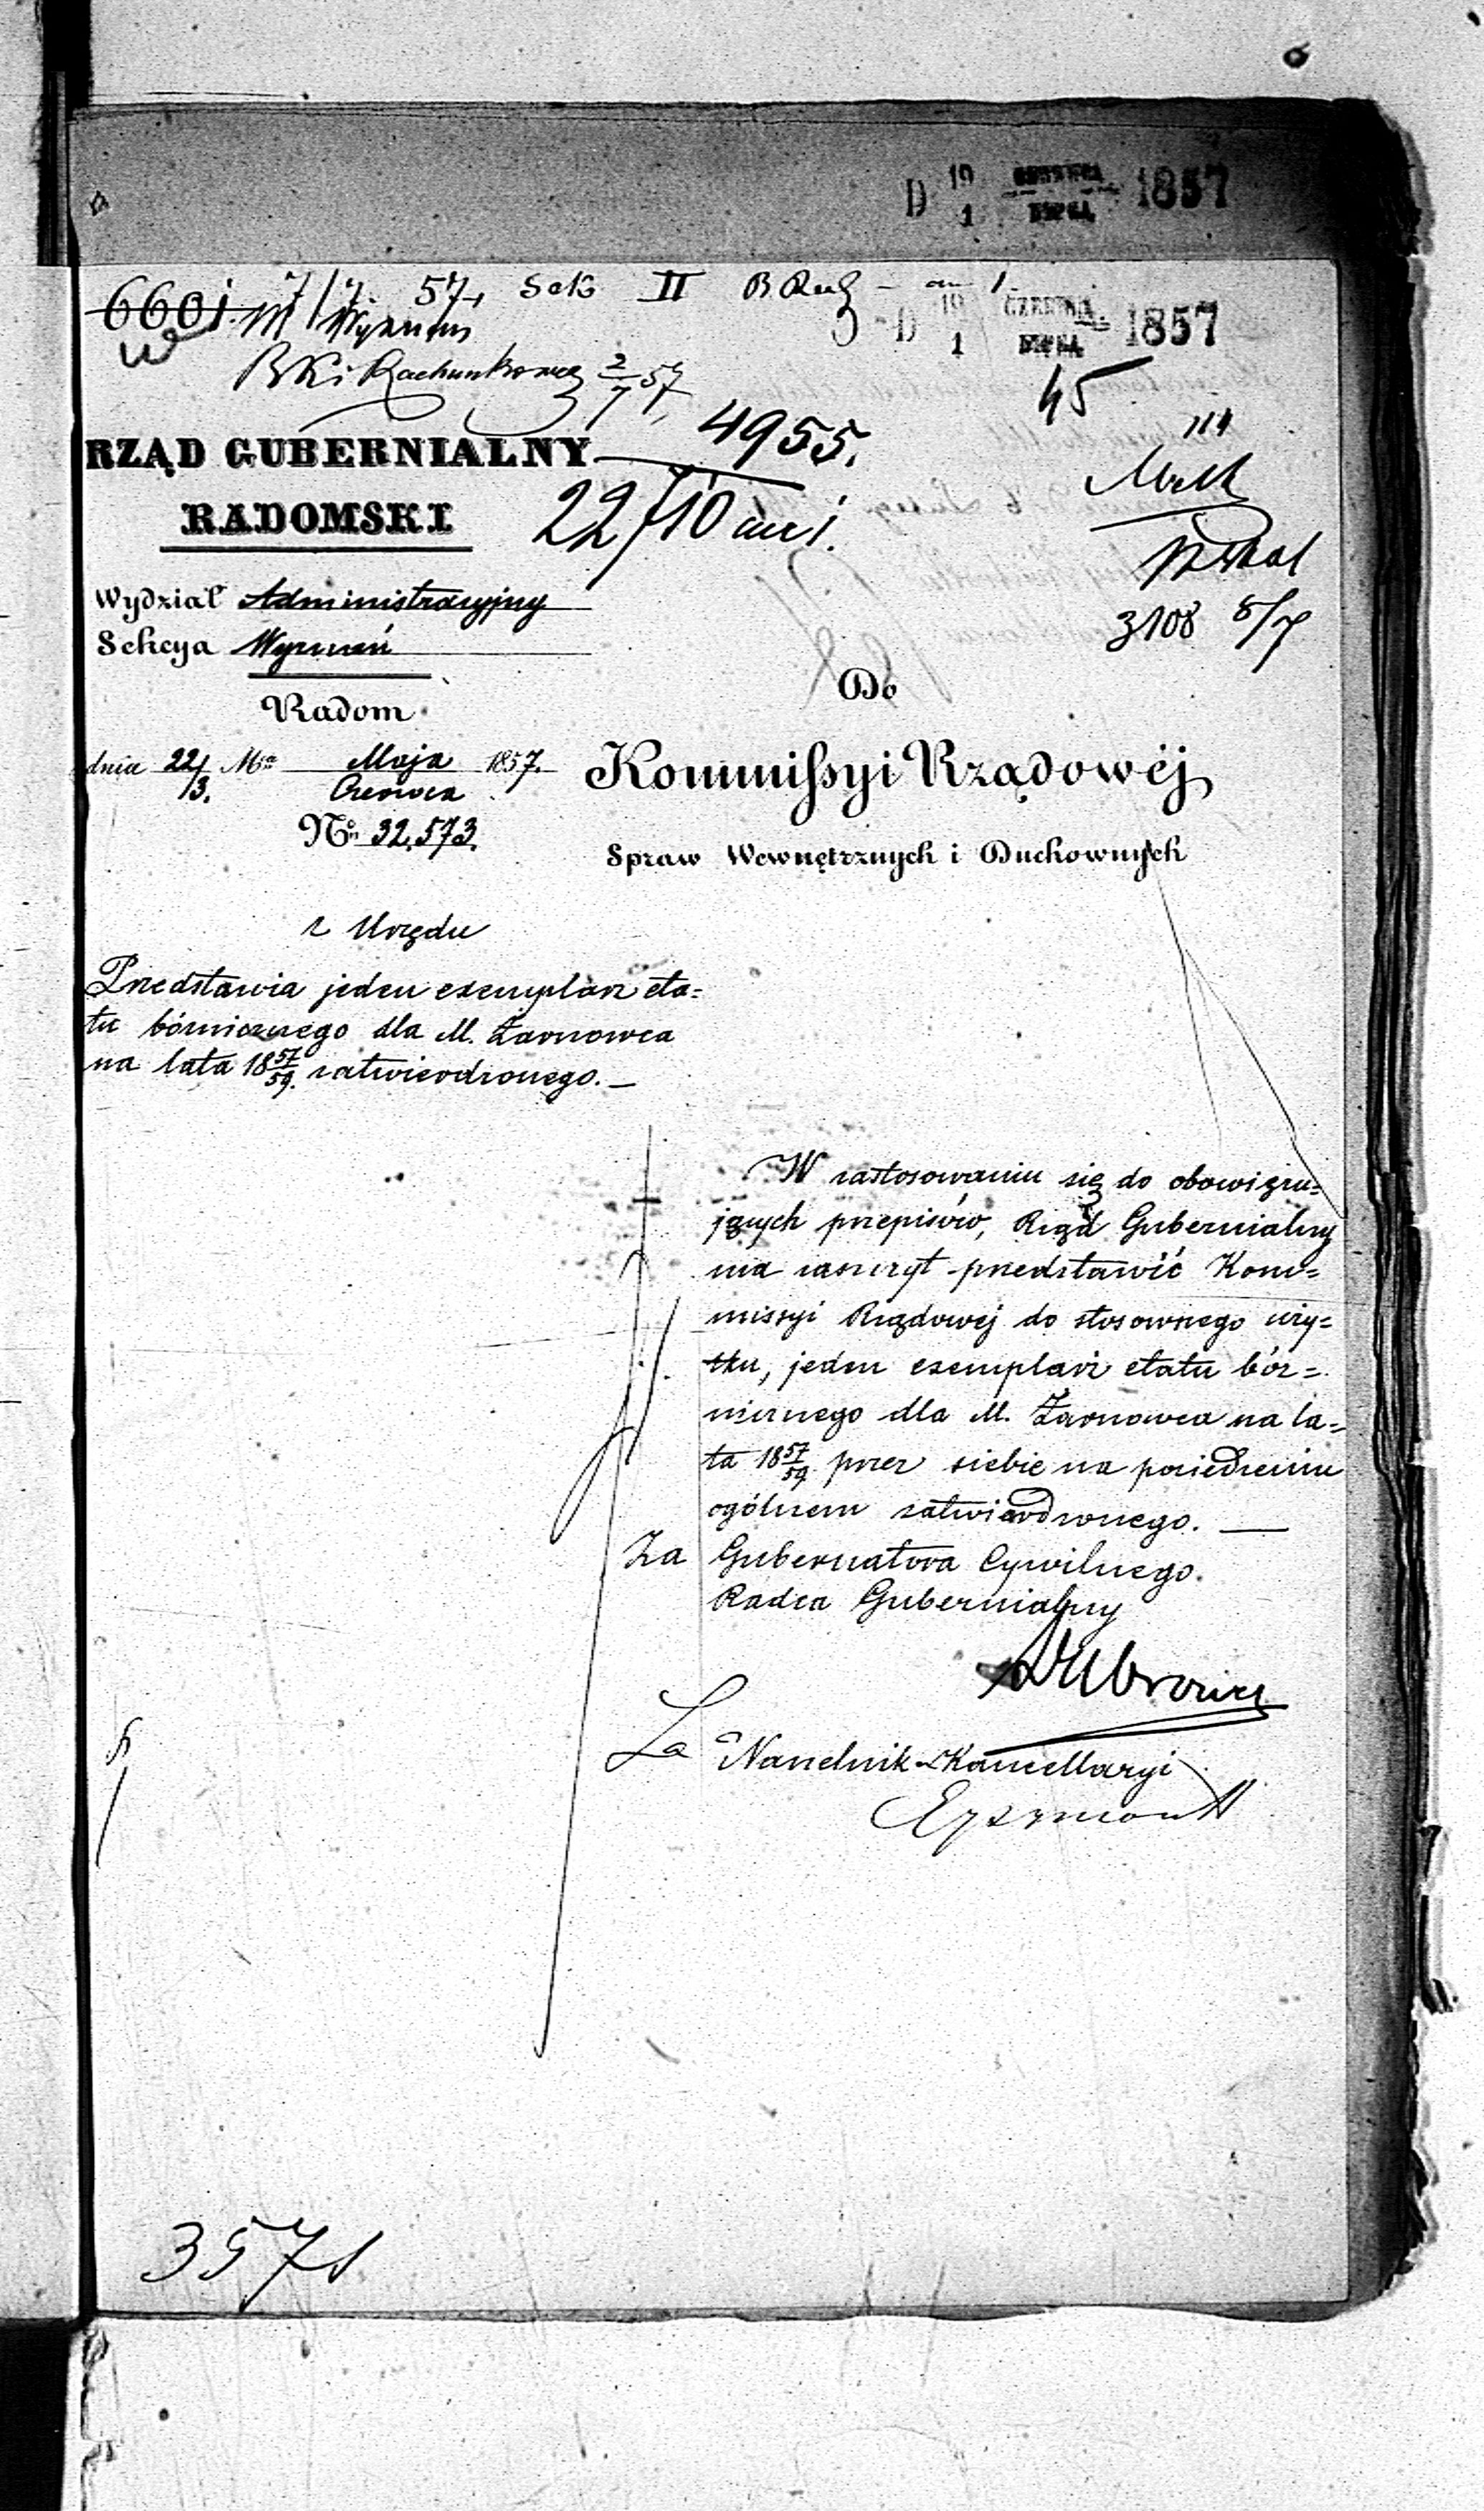 D 19/1 CZERWCA/LIPCA 1857
6601 57 Sek II
D 19/1 CZERWCA/LIPCA 1857
45
RZĄD GUBERNIALNY
4955.
RADOMSKI
22/10
Wydział Administracyjny
3108 8/7
Sekcya Wyznań
Do
Radom
dnia 22/3. Mca Maja/Czerwca 1857.
Kommissyi Rządowéj
No 32,573.
Spraw Wewnętrznych i Duchownych
z Urzędu
Przedstawia jeden exemplarz eta=
tu bóżnicznego dla M. Żarnowca
na lata 18 57/59. zatwierdzonego.
W zastosowaniu się do obowięzu=
jących przepisów, Rząd Gubernialny
ma zaszczyt przedstawić Kom=
missyi Rządowej do stosownego uży=
tku, jeden exemplarz etatu bóż=
nicznego dla M. Żarnowca na la=
ta 18 57/59 przez siebie na posiedzeniu
ogólnem zatwierdzonego.
Za Gubernatora Cywilnego.
Radca Gubernialny
Za Naczelnik Kancellaryi
3571